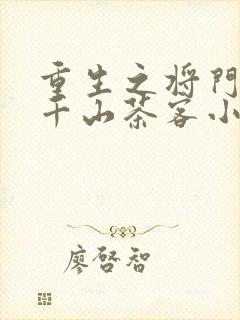 重生之将門
千山茶客小
廖啓智